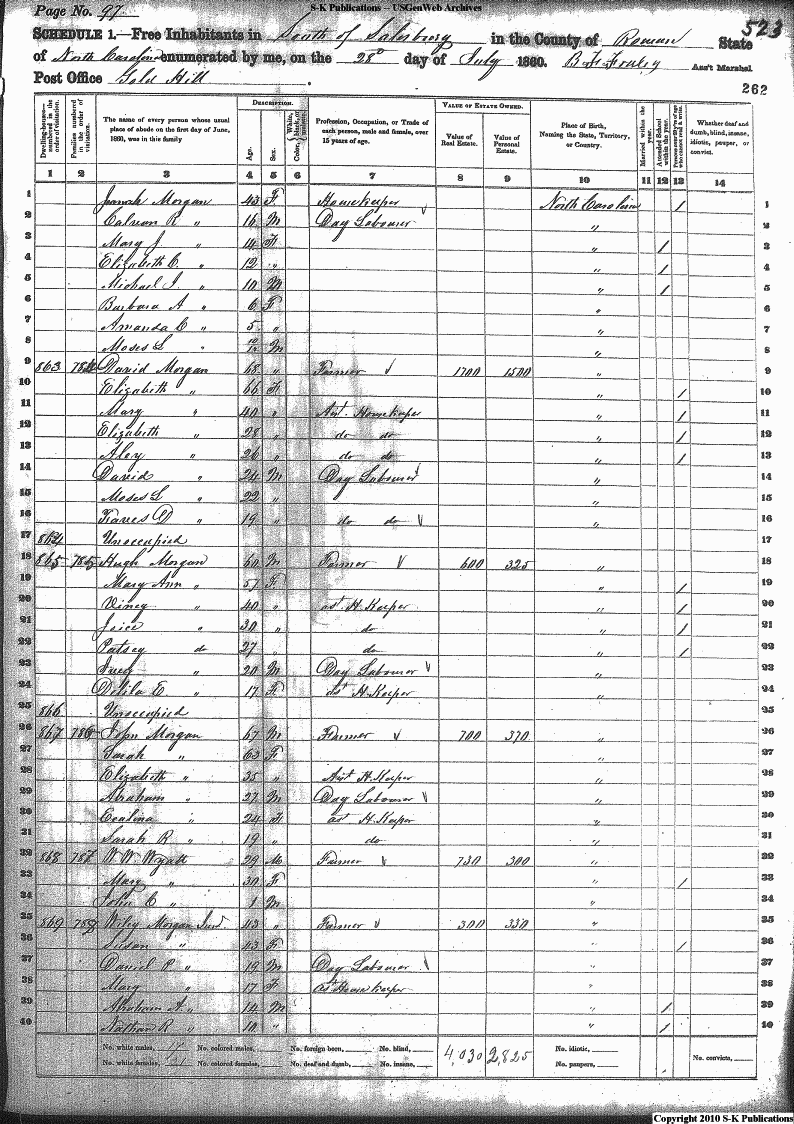 S-K Publications – USGenWeb Archives
Page No. 97
523
SCHEDULE 1.—Free Inhabitants in South of Salisbury in the County of Rowan State
of North Carolina enumerated by me, on the 28th day of July 1860. Ass't Marshal.
Post Office Gold Hill
262
Dwelling-houses numbered in the order of visitation. Families numbered in the order of visitation. The name of every person whose usual place of abode on the first day of June, 1860, was in this family DESCRIPTION. Age. Sex. Color, White, Profession, Occupation, or Trade of each person, male and female, over 15 years of age. VALUE OF ESTATE OWNED. Value of Real Estate. Value of Personal Estate. Place of Birth, Naming the State, Territory, or Country. Married within the year. Attended School within the year. Whether deaf and dumb, blind, insane, idiotic, pauper, or convict.
1 2 3 4 5 6 7 8 9 10 11 12 13 14
1 Morgan 43 F Housekeeper North Carolina / 1
2 Calvin R " 16 M Day Labourer " 2
3 Mary J " 14 F " / 3
4 Elizabeth C. " 12 " " / 4
5 Michael " 10 M " / 5
6 Barbara A " 6 F " 6
7 Amanda C " 5 " " 7
8 Moses L " 10/12 M " 8
9 863 David Morgan 68 " Farmer 1700 1500 " 9
10 Elizabeth " 66 F " / 10
11 Mary " 40 " Ast. Housekeeper " / 11
12 Elizabeth " 28 " do do " / 12
13 Aley " 26 " do do " / 13
14 David " 24 M Day Labourer " 14
15 Moses L " 22 " " 15
16 " 19 " do do " 16
17 864 Unoccupied 17
18 865 785 Hugh Morgan 60 M Farmer 600 325 " 18
19 Mary Ann " 57 F " / 19
20 Viney " 40 " ast H. Keeper " / 20
21 Joice " 30 " do " / 21
22 Patsey do 27 " do " / 22
23 " 20 M Day Labourer " 23
24 Delila E. " 17 F ast H. Keeper " 24
25 866 Unoccupied 25
26 867 786 John Morgan 67 M Farmer 700 370 " 26
27 Sarah " 63 F " 27
28 Elizabeth " 35 " Ast H. Keeper " 28
29 Abraham " 27 M Day Labourer " 29
30 " 24 F ast H. Keeper " 30
31 Sarah R " 19 " do " 31
32 868 787 W. W. Wyatt 29 M Farmer 730 300 " 32
33 Mary " 30 F " / 33
34 John C " 1 M " 34
35 869 788 Wiley Morgan 43 " Farmer 300 330 " 35
36 Susan " 43 F " / 36
37 Daniel P. " 19 M Day Labourer " 37
38 Mary " 17 F ast House keeper " 38
39 Abraham A. " 14 M " / 39
40 Nathan R " 10 " " / 40
No. white males, No. colored males, No. foreign born, No. blind, 4,030 2,825 No. idiotic, No. convicts,
No. white females, No. colored females, No. deaf and dumb, No. insane, No. paupers,
Copyright 2010 S-K Publications